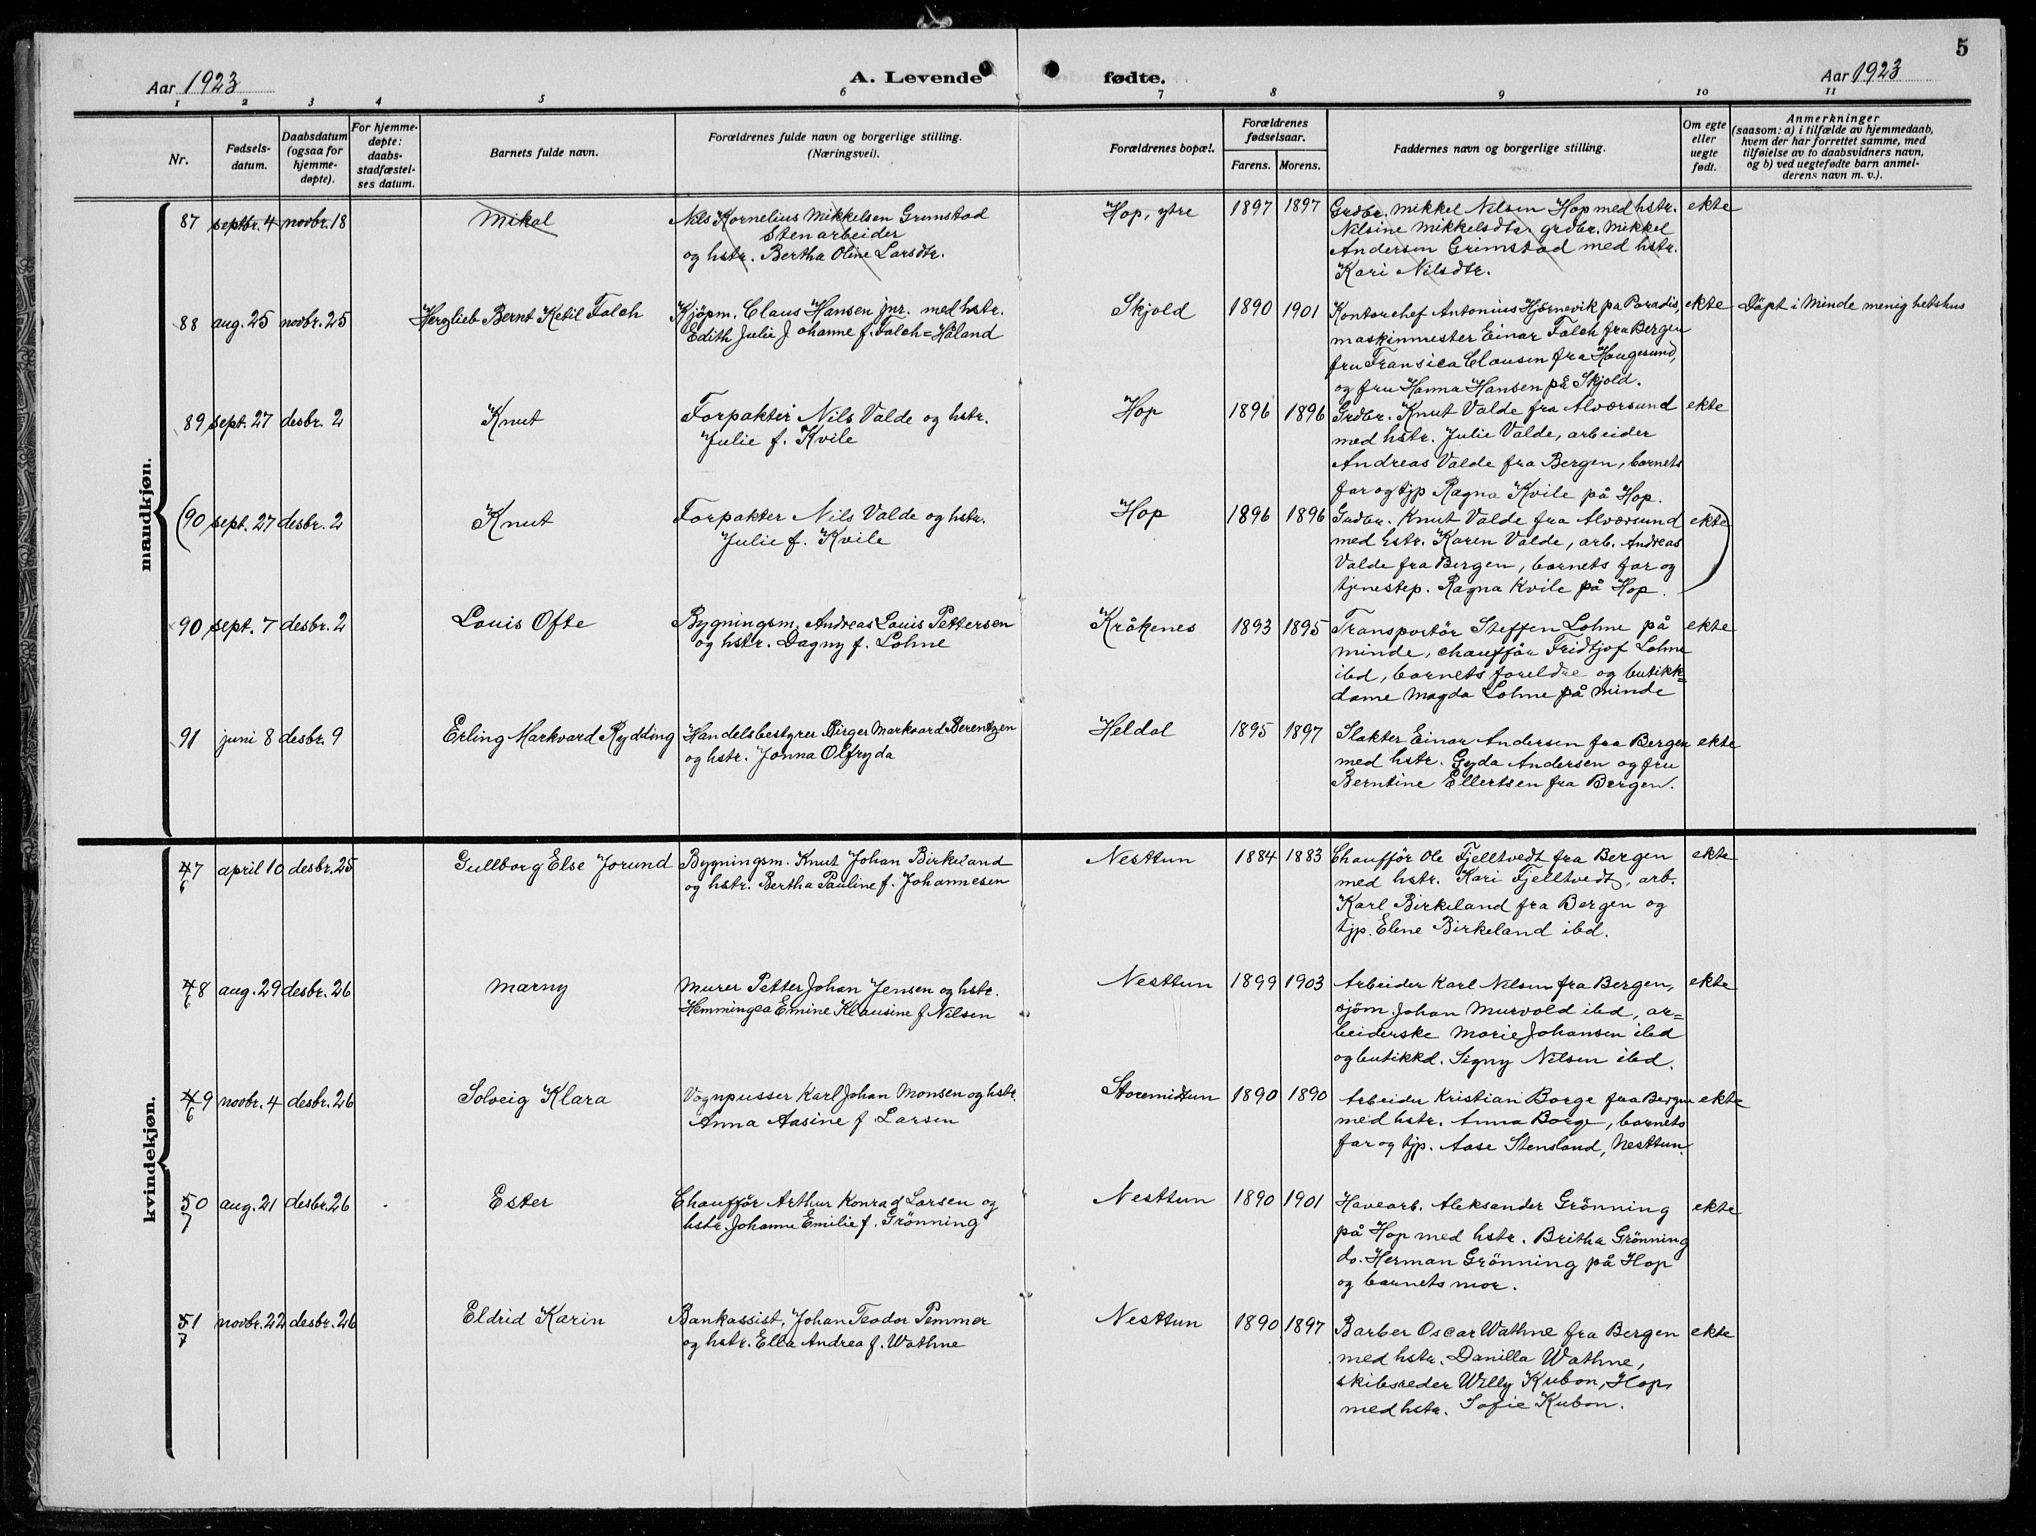 5
Aar 1923
A. Levende
fødte.
Aar 1923
1 2 3 4 5 6 7 8 9 10 11
Nr.
Fødsels-
datum.
Daabsdatum
(ogsaa for
hjemme-
døpte).
For hjemme-
døpte:
daabs-
stadfæstel-
ses datum.
Barnets fulde navn.
Forældrenes fulde navn og borgerlige stilling.
(Næringsvei).
Forældrenes bopæl.
Forældrenes
fødselsaar.
Farens. Morens.
Faddernes navn og borgerlige stilling.
Om egte
eller
uegte
født.
Anmerkninger
(saasom: a) i tilfælde av hjemmedaab,
hvem der har forrettet samme, med
tilføielse av to daabsvidners navn,
og b) ved uegtefødte barn anmel-
derens navn m. v.).
mandkjøn.
87 septbr. 4 novbr. 18 Mikal
Nils Kornelius Mikkelsen Grimstad
Stenarbeider
og hstr. Bertha Oline Larsdtr.
Hop, ytre 1897 1897
Grdbr. Mikkel Nilsen Hop med hstr.
Nilsine Mikkelsdtr. grdbr. Mikkel
Andersen Grimstad med hstr.
Kari Nilsdtr.
ekte
88 aug. 25 novbr. 25 Herzlieb Bernt Ketil Falch
Kjöpm. Claus Hansen jnr. med hstr.
Edith Julie Johanne f. Falch=Håland
Skjold 1890 1901
Kontorchef Antonius Hjörnevik på Paradis,
maskinmester Einar Falch fra Bergen
fru Fransica Clausen fra Haugesund,
og fru Hanna Hansen på Skjold.
ekte Döpt i Minde menighetshus
89 sept. 27 desbr. 2 Knut
Forpakter Nils Valde og hstr.
Julie f. Kvile
Hop 1896 1896
Grdbr. Knut Valde fra Alværsund
med hstr. Julie Valde, arbeider
Andreas Valde fra Bergen, barnets
far og tjp Ragna Kvile på Hop.
ekte
(90 sept. 27 desbr. 2 Knut
Forpakter Nils Valde og hstr.
Julie f. Kvile
Hop 1896 1896
Grdbr. Knut Valde fra Alværsund
med hstr. Karen Valde, arb. Andreas
Valde fra Bergen, barnets far og
tjenestep. Ragna Kvile på Hop.
ekte)
90 sept. 7 desbr. 2 Louis Ofte
Bygningsm. Andreas Louis Pettersen
og hstr. Dagny f. Lohne
Kråkenes 1893 1895
Transportör Steffen Lohne på
minde, chaufför Fridtjof Lohne
ibd, barnets foreldre og butikk=
dame Magda Lohne på minde
ekte
91 juni 8 desbr. 9 Erling Markvard Rydding
Handelsbestyrer Birger Markvard Berentzen
og hstr. Jonna Olfryda
Heldal 1895 1897
Slakter Einar Andersen fra Bergen
med hstr. Gyda Andersen og fru
Berntine Ellertsen fra Bergen.
ekte
kvindekjøn.
47 april 10 desbr. 25 Gullborg Else Jorund
6
Bygningsm. Knut Johan Birkeland
og hstr. Bertha Pauline f. Johannesen
Nesttun 1884 1883
Chaufför Ole Fjelltvedt fra Bergen
med hstr. Kari Fjelltvedt, arb.
Karl Birkeland fra Bergen og
tjp. Elene Birkeland ibd.
ekte
48 aug. 29 desbr. 26 Marny
6
Murer Petter Johan Jensen og hstr.
Hemmingea Emine Klausine f Nilsen
Nesttun 1899 1903
Arbeider Karl Nilsen fra Bergen,
sjöm. Johan Murvold ibd, ar=
beiderske Marie Johansen ibd
og butikkd. Signy Nilsen ibd.
ekte
49 novbr. 4 desbr. 26 Solveig Klara
6
Vognpusser Karl Johan Monsen og hstr.
Anna Aasine f Larsen
Storemidtun 1890 1890
Arbeider Kristian Borge fra Bergen
med hstr. Anna Borge, barnets
far og tjp. Aase Stensland, Nesttun.
ekte
50 aug. 21 desbr. 26 Ester
7
Chaufför Arthur Konrad Larsen og
hstr. Johanne Emilie f. Grönning
Nesttun 1890 1901
Havearb. Aleksander Grönning
på Hop med hstr. Britha Grönning
do. Herman Grönning på Hop
og barnets mor.
ekte
51 novbr. 22 desbr. 26 Eldrid Karin
7
Bankassist, Johan Teodor Pemmer
og hstr. Ella Andrea f. Wathne
Nesttun 1890 1897
Barber Oscar Wathne fra Bergen
med hstr. Danilla Wathne,
skibsreder Willy Kubon, Hop,
med hstr. Sofie Kubon.
ekte